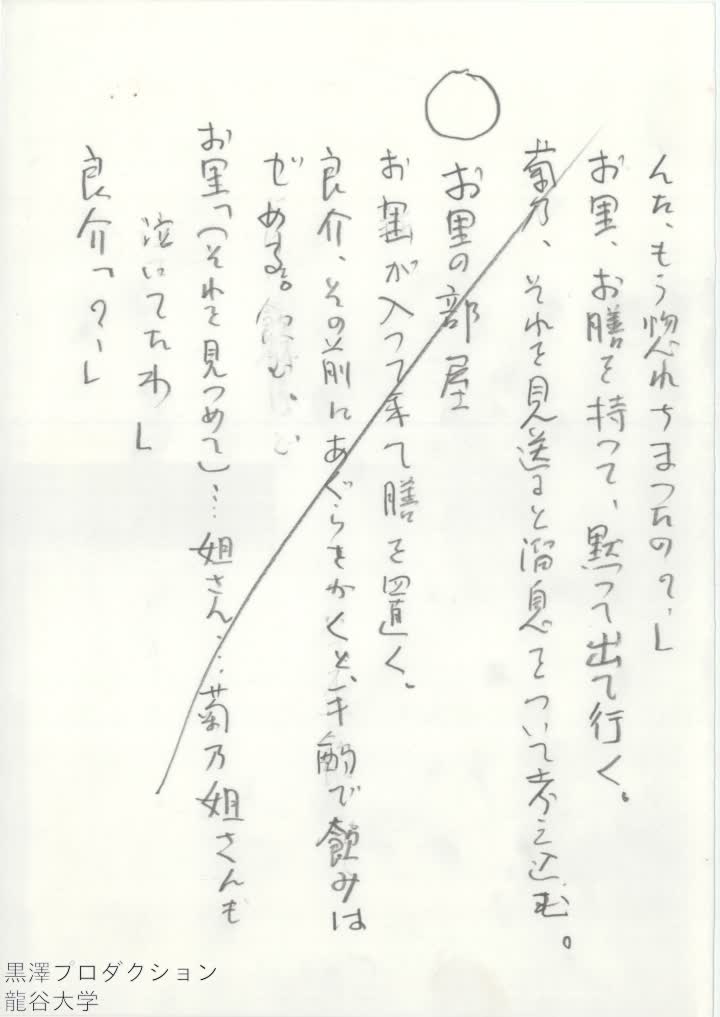 んた、もう惚れちまったの?」
お里、お膳を持って、黙って出て行く。
菊乃、それを見送ると溜息をついて考え込む。
○
お里の部屋
お里が入って来て膳を置く。
良介、その前にあぐらをかくと、手酌で飲みは
じめる。
お里「(それを見つめて)…姐さん…菊乃姐さんも
泣いてたわ」
良介「?」
黒澤プロダクション
龍谷大学